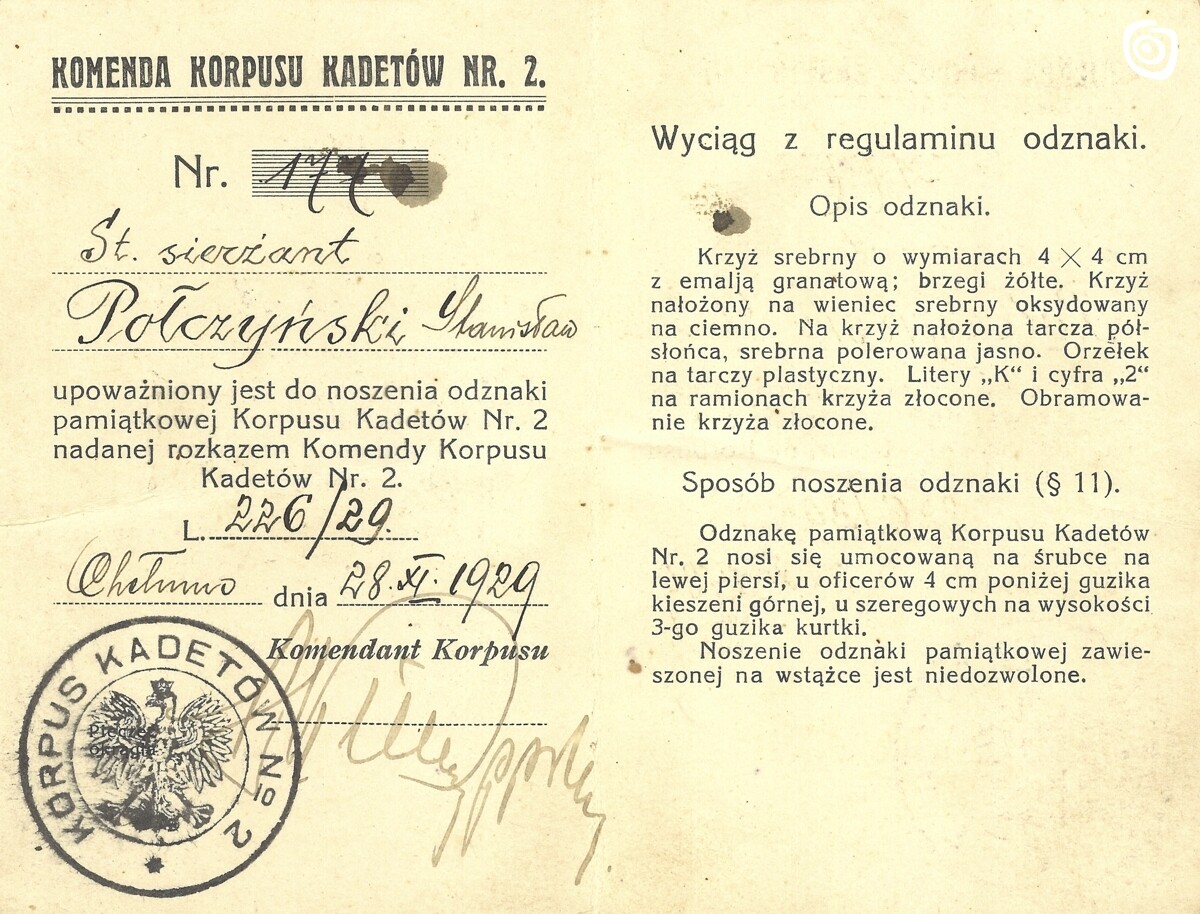 KOMENDA KORPUSU KADETÓW NR. 2.
Nr. 177
St. sierżant
Połczyński Stanisław
upoważniony jest do noszenia odznaki
pamiątkowej Korpusu Kadetów Nr. 2
nadanej rozkazem Komendy Korpusu
Kadetów Nr. 2.
L. 226/29.
Chełmno dnia 28.XI.1929
Komendant Korpusu
KORPUS KADETÓW No 2
Pieczęć
okrągła
Wyciąg z regulaminu odznaki.
Opis odznaki.
Krzyż srebrny o wymiarach 4 × 4 cm
z emalją granatową; brzegi żółte. Krzyż
nałożony na wieniec srebrny oksydowany
na ciemno. Na krzyż nałożona tarcza pół-
słońca, srebrna polerowana jasno. Orzełek
na tarczy plastyczny. Litery „K“ i cyfra „2“
na ramionach krzyża złocone. Obramowa-
nie krzyża złocone.
Sposób noszenia odznaki (§ 11).
Odznakę pamiątkową Korpusu Kadetów
Nr. 2 nosi się umocowaną na śrubce na
lewej piersi, u oficerów 4 cm poniżej guzika
kieszeni górnej, u szeregowych na wysokości
3-go guzika kurtki.
Noszenie odznaki pamiątkowej zawie-
szonej na wstążce jest niedozwolone.